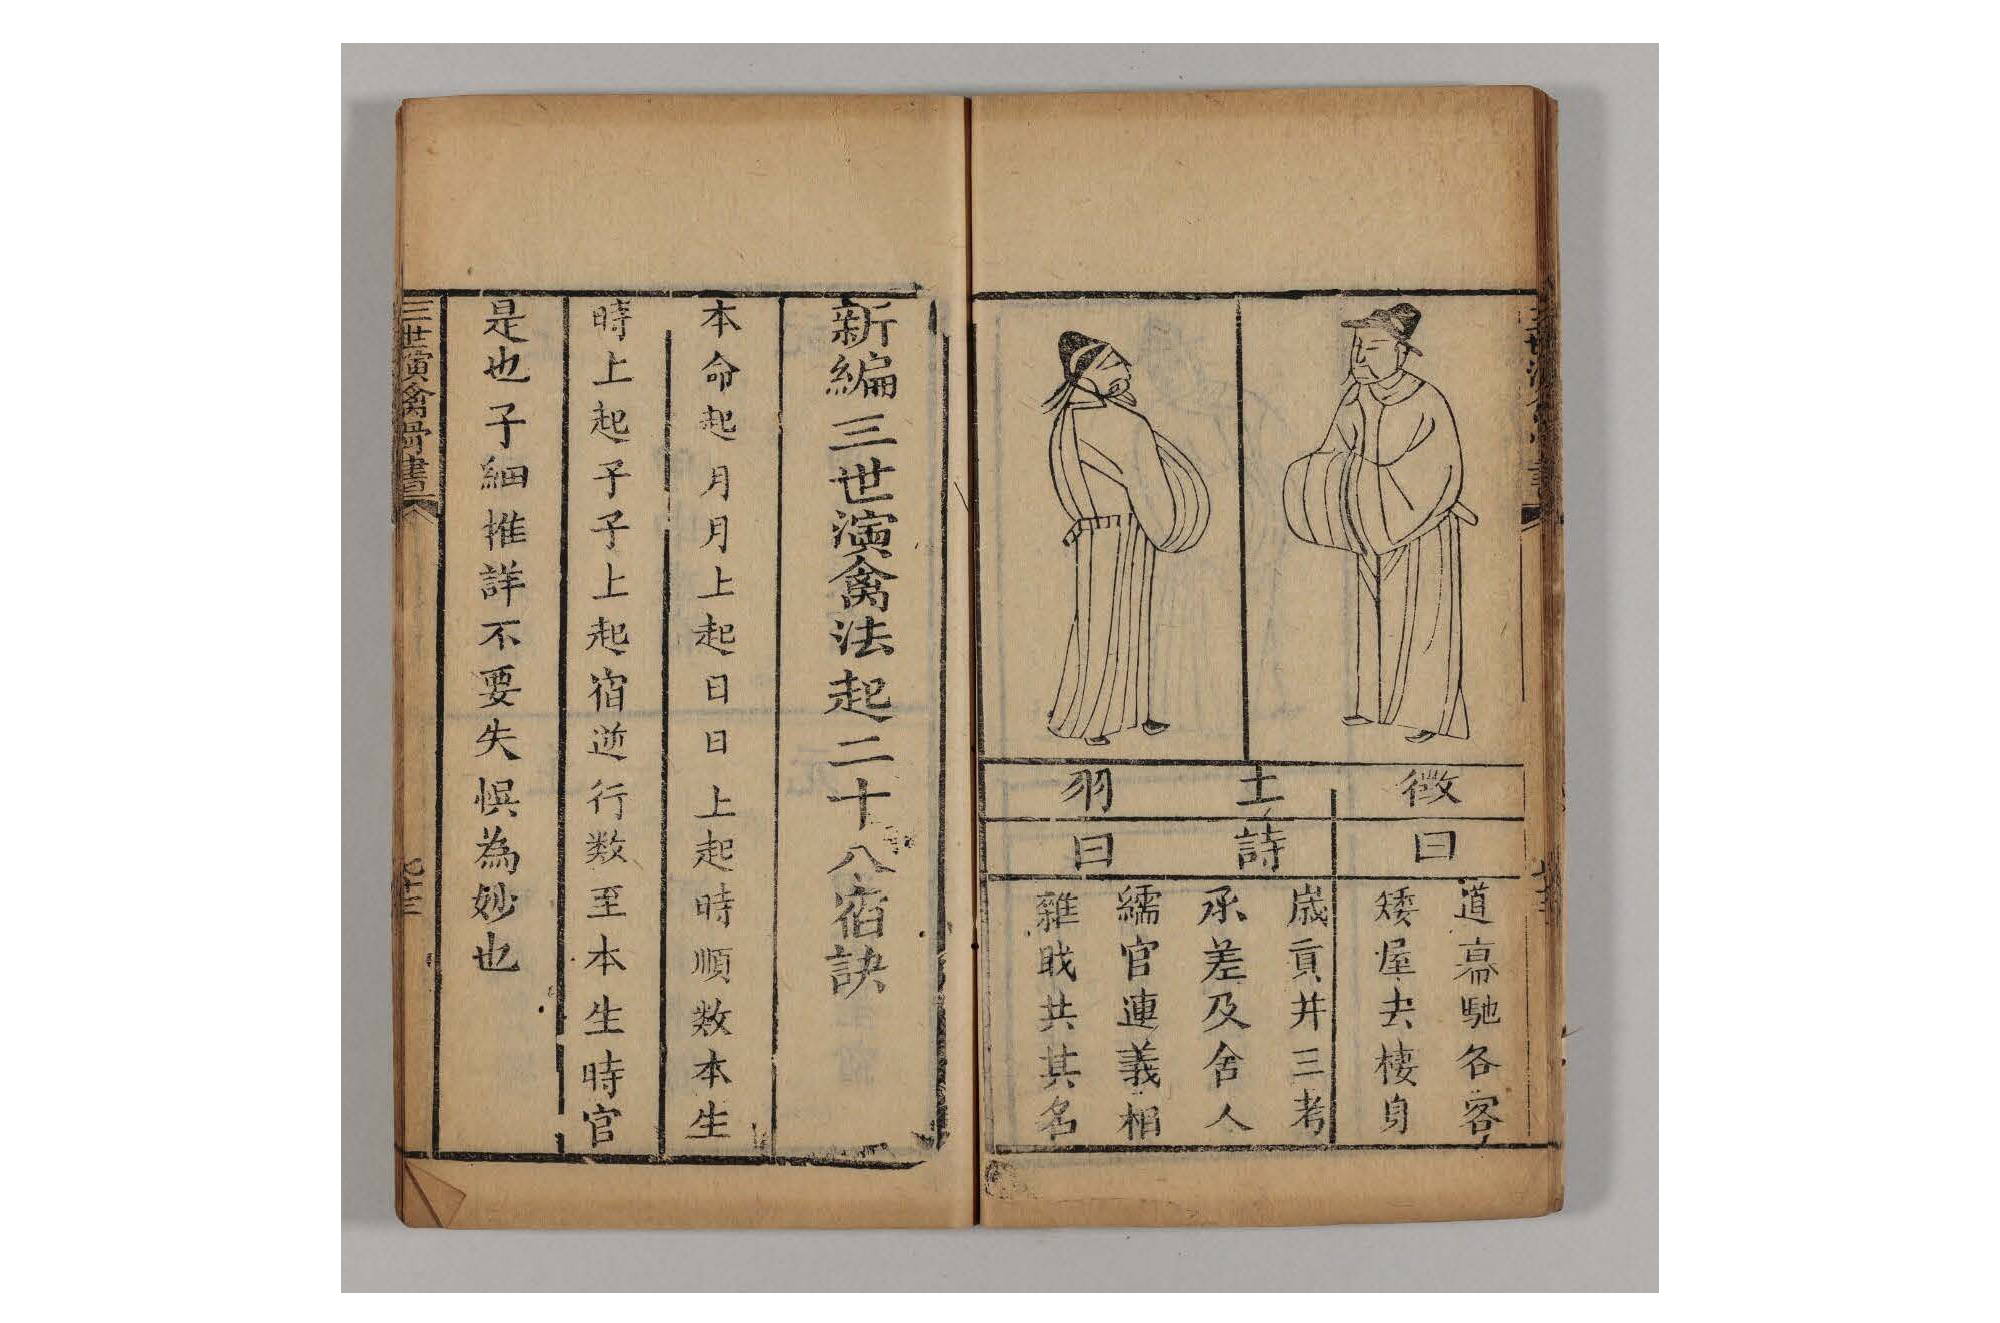 徵
土
羽
曰
詩
曰
道高馳各客
矮屋去棲身
歲貢井三考
承差及舍人
繻官連義相
雜戝共其名
新編三世演禽法起二十八宿訣
本命起月月上起日日上起時順数本生
時上起子子上起宿逆行数至本生時官
是也子細推詳不要失悞為妙也
三世演禽骨書